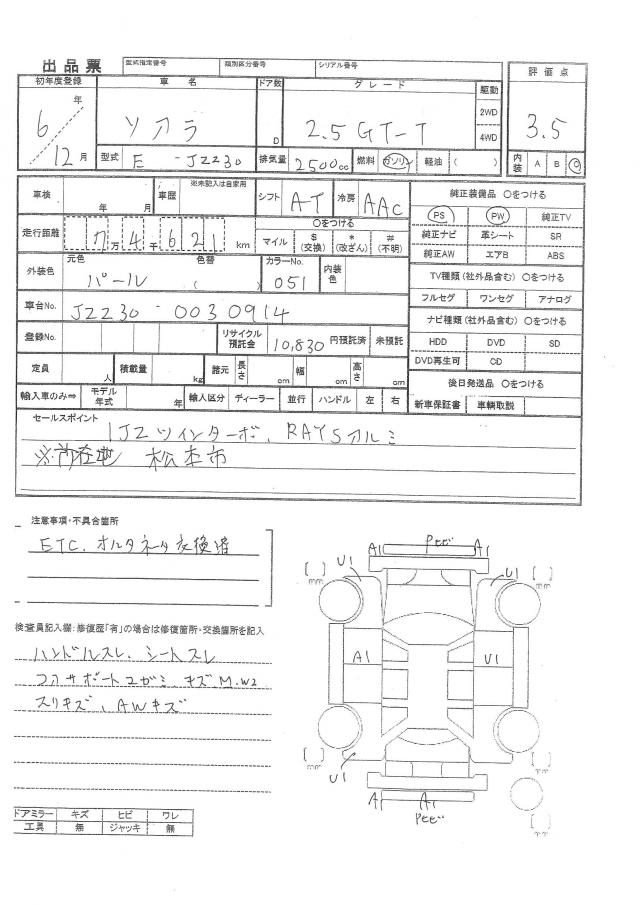 出品票 型式指定番号 類別区分番号 シリアル番号
評価点
初年度登録 車名 ドア数 グレード 駆動
6年 ソアラ D 2.5 GT-T 2WD 3.5
4WD
12月 型式 E - JZZ30 排気量 2500cc 燃料 ガソリン 軽油 ( ) 内装 A B C
車検 年 月 車歴 ※未記入は自家用 シフト A-T 冷房 AAC 純正装備品 〇をつける
PS PW 純正TV
走行距離 7万4千621km 〇をつける
マイル $(交換) *(改ざん) #(不明) 純正ナビ 革シート SR
純正AW エアB ABS
外装色 元色 パール 色替 ( ) カラーNo. 051 内装色
TV種類(社外品含む) 〇をつける
フルセグ ワンセグ アナログ
車台No. JZZ30 - 0030914
ナビ種類(社外品含む) 〇をつける
登録No. リサイクル預託金 10,830 円預託済 未預託
HDD DVD SD
DVD再生可 CD
定員 人 積載量 kg 諸元 長さ cm 幅 cm 高さ cm
後日発送品 〇をつける
輸入車のみ⇒ モデル年式 年 輸入区分 ディーラー 並行 ハンドル 左 右 新車保証書 車輌取説
セールスポイント
1JZツインターボ、RAYSアルミ
※所在地 松本市
注意事項・不具合箇所
ETC、オルタネータ交換済
A1 PセビA1
U1 U1
[ ]mm [ ]mm
検査員記入欄:修復歴「有」の場合は修復箇所・交換箇所を記入
ハンドルスレ、シートスレ
A1 U1
コアサポートユガミ、キズM.W2
スリキズ、AWキズ
[ ]mm [ ]mm
U1
A1 A1
Pセビ
[ ]mm
ドアミラー キズ ヒビ ワレ
工具 無 ジャッキ 無